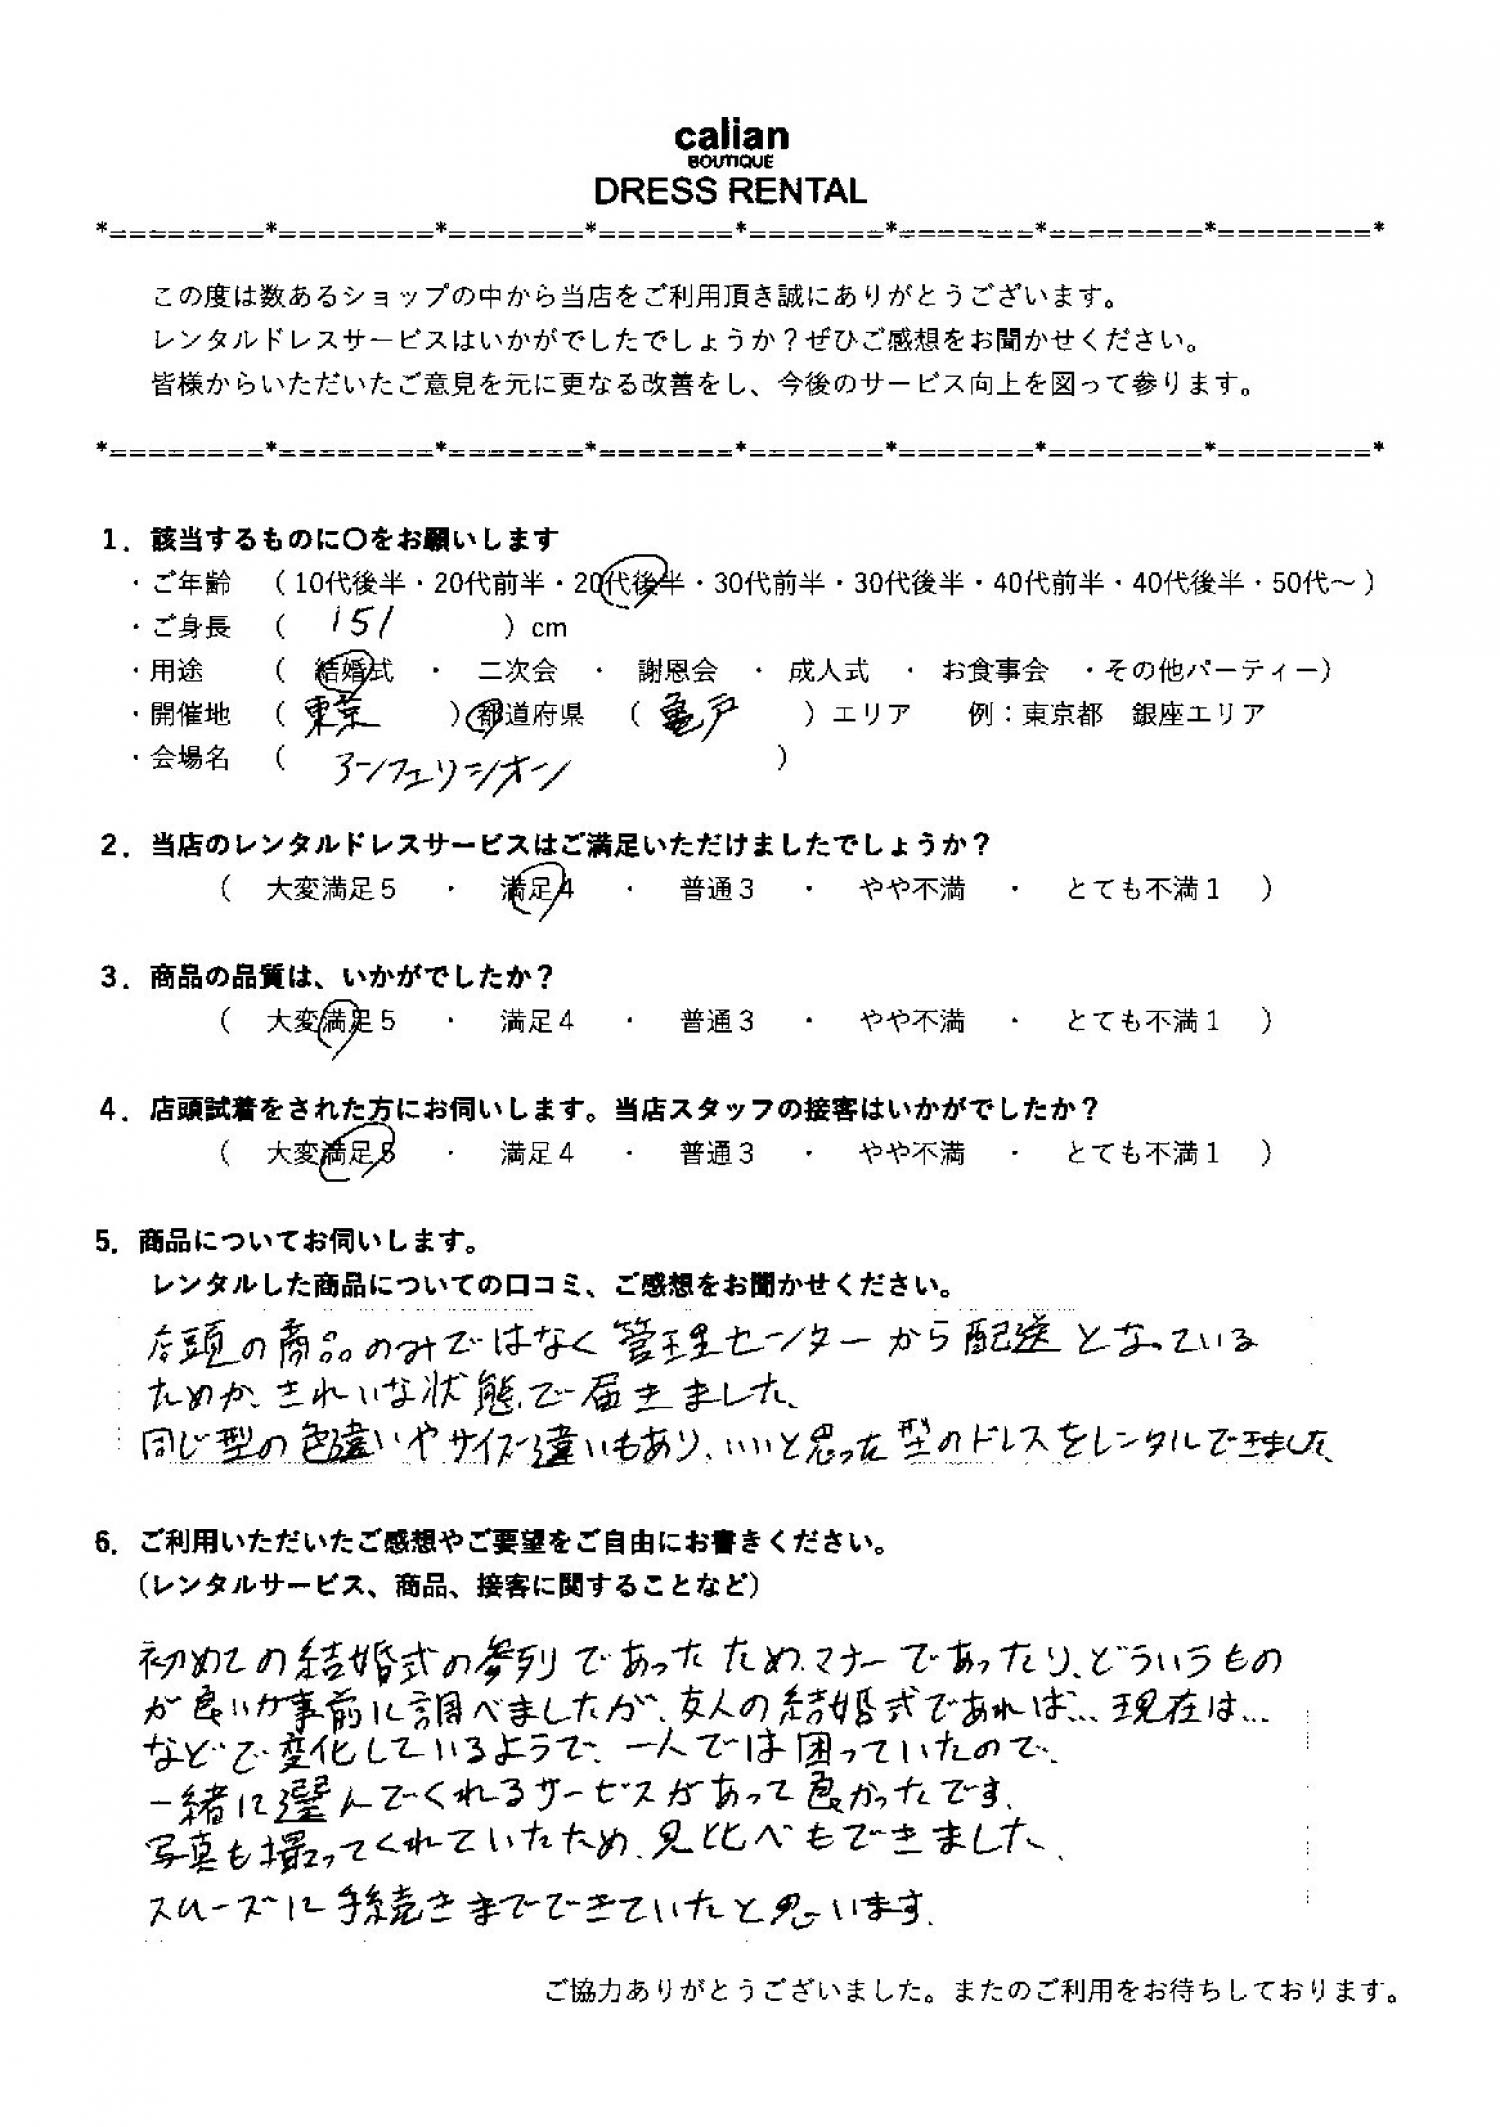 calian
BOUTIQUE
DRESS RENTAL
*========*========*=======*=======*=======*=======*========*========*
この度は数あるショップの中から当店をご利用頂き誠にありがとうございます。
レンタルドレスサービスはいかがでしたでしょうか？ぜひご感想をお聞かせください。
皆様からいただいたご意見を元に更なる改善をし、今後のサービス向上を図って参ります。
*========*========*=======*=======*=======*=======*========*========*
1．該当するものに〇をお願いします
・ご年齢 （ 10代後半・20代前半・20代後半・30代前半・30代後半・40代前半・40代後半・50代～ ）
・ご身長 （ 151 ）cm
・用途 （ 結婚式 ・ 二次会 ・ 謝恩会 ・ 成人式 ・ お食事会 ・その他パーティー）
・開催地 （ 東京 ）都道府県 （ 亀戸 ）エリア 例：東京都 銀座エリア
・会場名 （ アンフェリシオン ）
2．当店のレンタルドレスサービスはご満足いただけましたでしょうか？
（ 大変満足５ ・ 満足４ ・ 普通３ ・ やや不満 ・ とても不満１ ）
3．商品の品質は、いかがでしたか？
（ 大変満足５ ・ 満足４ ・ 普通３ ・ やや不満 ・ とても不満１ ）
4．店頭試着をされた方にお伺いします。当店スタッフの接客はいかがでしたか？
（ 大変満足５ ・ 満足４ ・ 普通３ ・ やや不満 ・ とても不満１ ）
5．商品についてお伺いします。
レンタルした商品についての口コミ、ご感想をお聞かせください。
店頭の商品のみではなく管理センターから配送となっている
ためか、きれいな状態で届きました、
同じ型の色違いやサイズ違いもあり、いいと思った型のドレスをレンタルできました
6．ご利用いただいたご感想やご要望をご自由にお書きください。
（レンタルサービス、商品、接客に関することなど）
初めての結婚式の参列であったため、マナーであったり、どういうもの
が良いか事前に調べましたが、友人の結婚式であれば…現在は…
などで変化しているようで、一人では困っていたので、
一緒に選んでくれるサービスがあって良かったです、
写真も撮ってくれていたため、見比べもできました、
スムーズに手続きまでできていたと思います、
ご協力ありがとうございました。またのご利用をお待ちしております。